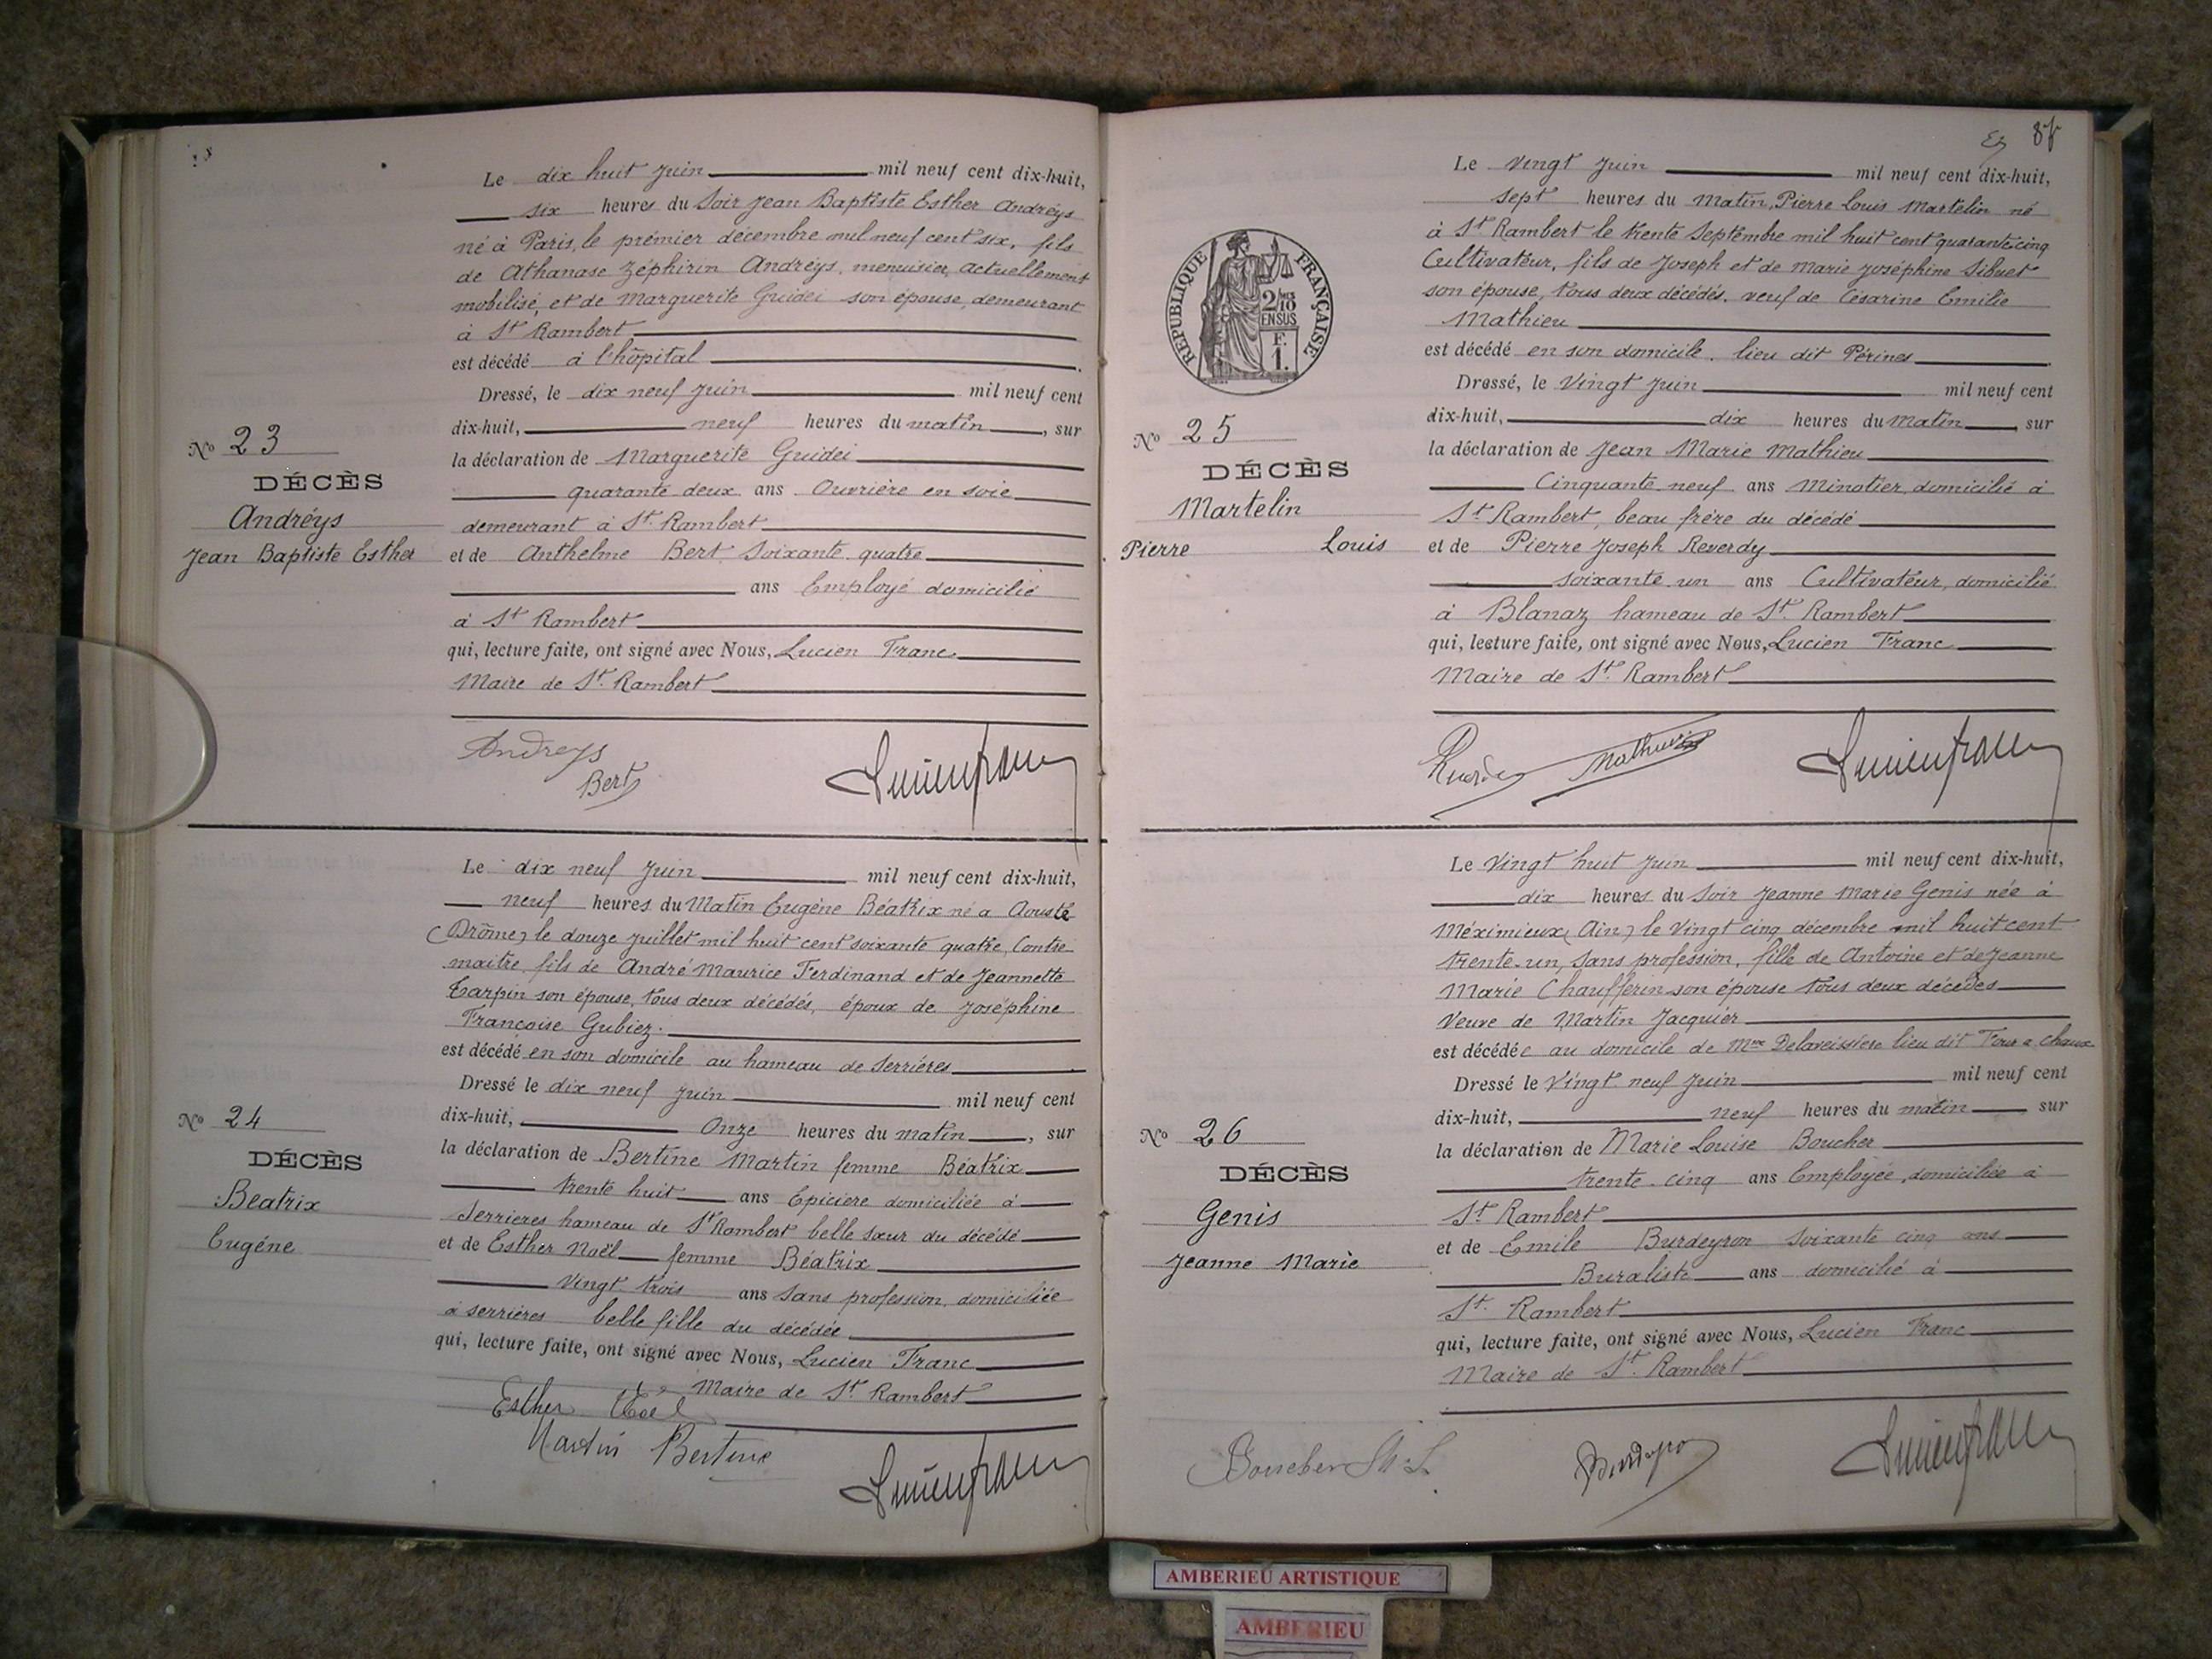 Le dix huit Juin mil neuf cent dix-huit,
six heures du Soir Jean Baptiste Esther Andréys
né à Paris, le prémier décembre mil neuf cent six, fils
de Athanase Zéphirin Andréys, menuisier, actuellement
mobilisé, et de Marguerite Guidei son épouse, demeurant
à St Rambert
est décédé à l'hôpital
Dressé, le dix neuf Juin mil neuf cent
dix-huit, neuf heures du matin, sur
la déclaration de Marguerite Guidei
quarante deux ans Ouvrière en soie
demeurant à St Rambert
et de Anthelme Bert Soixante quatre
ans Employé domicilié
à St Rambert
qui, lecture faite, ont signé avec Nous, Lucien Franc
Maire de St Rambert
No 23
DÉCÈS
Andréys
Jean Baptiste Esther
Andreys
Bert
Lucien franc
Le dix neuf Juin mil neuf cent dix-huit,
neuf heures du Matin Eugène Béatrix né a Aouste
(Drôme) le douze Juillet mil huit cent soixante quatre, Contre-
maitre, fils de André Maurice Ferdinand et de Jeannette
Tarpin son épouse, tous deux décédés, époux de Joséphine
Francoise Gubiez.
est décédé en son domicile au hameau de Serrières
Dressé le dix neuf Juin mil neuf cent
dix-huit, Onze heures du matin, sur
la déclaration de Bertine Martin femme Béatrix
trente huit ans Epiciere domiciliée à
Serrieres hameau de St Rambert belle sœur du décédé
et de Esther Noël femme Béatrix
Vingt trois ans Sans profession, domiciliée
à Serrières belle fille du décédée
qui, lecture faite, ont signé avec Nous, Lucien Franc
Maire de St Rambert
No 24
DÉCÈS
Beatrix
Eugéne
Esther Noel
Martin Bertine
Lucien franc
Le Vingt Juin mil neuf cent dix-huit,
sept heures du Matin, Pierre Louis Martelin né
à St Rambert le trente Septembre mil huit cent quarante cinq
Cultivateur, fils de Joseph et de Marie Joséphine Sibuet
son épouse, tous deux décédés. veuf de Césarine Emilie
Mathieu
est décédé en son domicile. lieu dit Pérines
Dressé, le Vingt Juin mil neuf cent
dix-huit, dix heures du Matin, sur
la déclaration de Jean Marie Mathieu
Cinquante neuf ans Minotier, domicilié à
St Rambert, beau frère du décédé
et de Pierre Joseph Reverdy
soixante un ans Cultivateur, domicilié
à Blanaz hameau de St Rambert
qui, lecture faite, ont signé avec Nous, Lucien Franc
Maire de St Rambert
RÉPUBLIQUE FRANÇAISE
2/10
EN SUS
F.
1.
No 25
DÉCÈS
Martelin
Pierre Louis
Mathieu
Lucien franc
Le Vingt huit Juin mil neuf cent dix-huit,
dix heures du Soir Jeanne Marie Genis née à
Méximieux (Ain) le Vingt cinq décembre mil huit cent
trente-un, Sans profession, fille de Antoine et de Jeanne
Marie Chaufferin son épouse tous deux décédés
Veuve de Martin Jacquier
est décédée au domicile de Mme Delaveissiere lieu dit Four a Chaux
Dressé le Vingt neuf Juin mil neuf cent
dix-huit, neuf heures du matin sur
la déclaration de Marie Louise Boucher
trente-cinq ans Employée, domiciliée à
St Rambert
et de Emile Burdeyron Soixante cinq ans
Buraliste ans domicilié à
St Rambert
qui, lecture faite, ont signé avec Nous, Lucien Franc
Maire de St Rambert
No 26
DÉCÈS
Genis
Jeanne Marie
Boucher M. L.
Lucien franc
AMBERIEU ARTISTIQUE
AMBERIEU